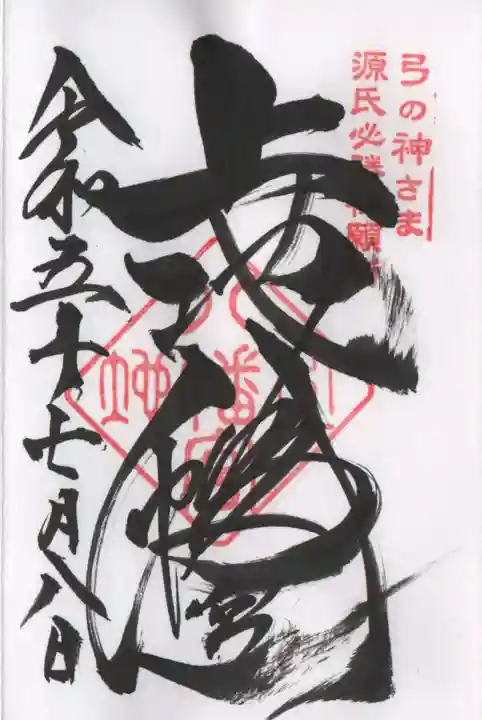 弓の神さま
源氏必勝祈願所
上地八幡宮
令和五年七月八日